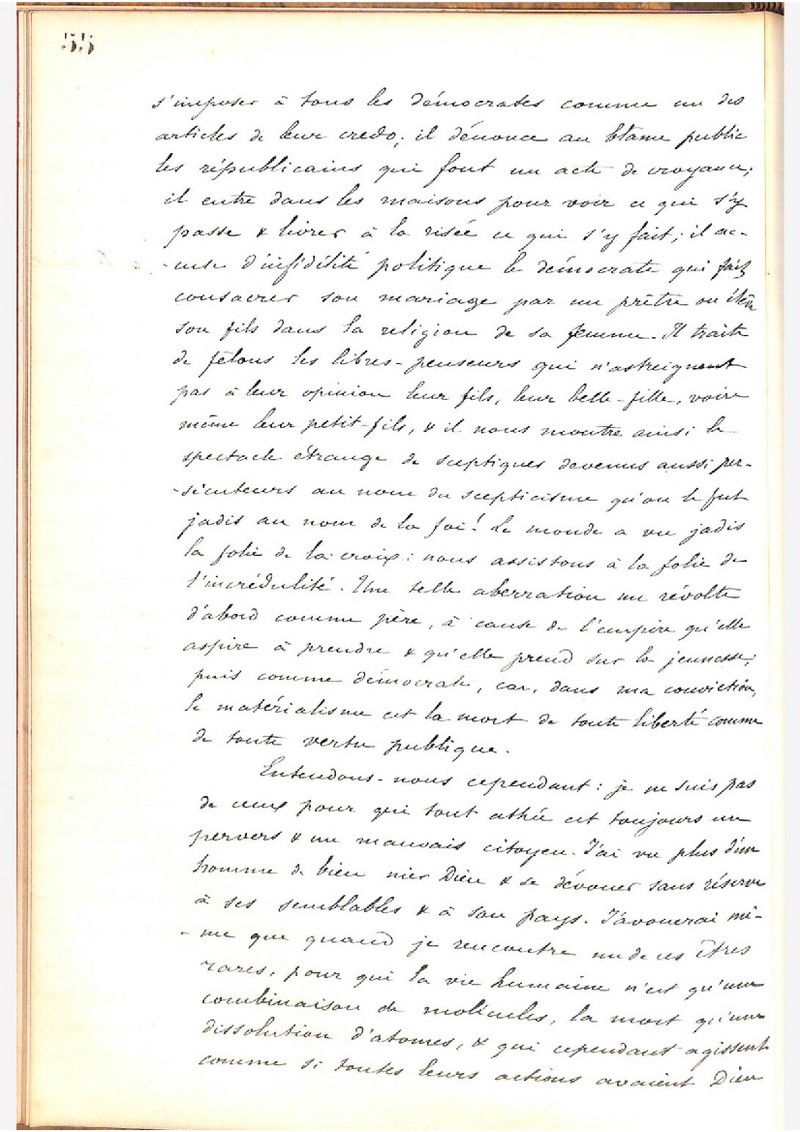 55
s'imposer à tous les démocrates comme un des
articles de leur credo; il dénonce au blâme public
les républicains qui font un acte de croyance;
il entre dans les maisons pour voir ce qui s'y
passe & livrer à la risée ce qui s'y fait; il ac-
-cuse d'infidélité politique le démocrate qui fait
consacrer son mariage par un prêtre ou élève
son fils dans la religion de sa femme. Il traite
de félons les libres-penseurs qui n'astreignent
pas à leur opinion leur fils, leur belle-fille, voire
même leur petit-fils, & il nous montre ainsi le
spectacle étrange de sceptiques devenus aussi per-
-sécuteurs au nom du scepticisme qu'on le fut
jadis au nom de la foi! Le monde a vu jadis
la folie de la croix: nous assistons à la folie de
l'incrédulité. Une telle aberration me révolte
d'abord comme père, à cause de l'empire qu'elle
aspire à prendre & qu'elle prend sur la jeunesse;
puis comme démocrate, car, dans ma conviction,
le matérialisme est la mort de toute liberté comme
de toute vertu publique.
Entendons-nous cependant: je ne suis pas
de ceux pour qui tout athée est toujours un
pervers & un mauvais citoyen. J'ai vu plus d'un
homme de bien nier Dieu & se dévouer sans réserve
à ses semblables & à son pays. J'avouerai mê-
-me que quand je rencontre un de ces êtres
rares, pour qui la vie humaine n'est qu'une
combinaison de molécules, la mort qu'une
dissolution d'atomes, & qui cependant agissent
comme si toutes leurs actions avaient Dieu